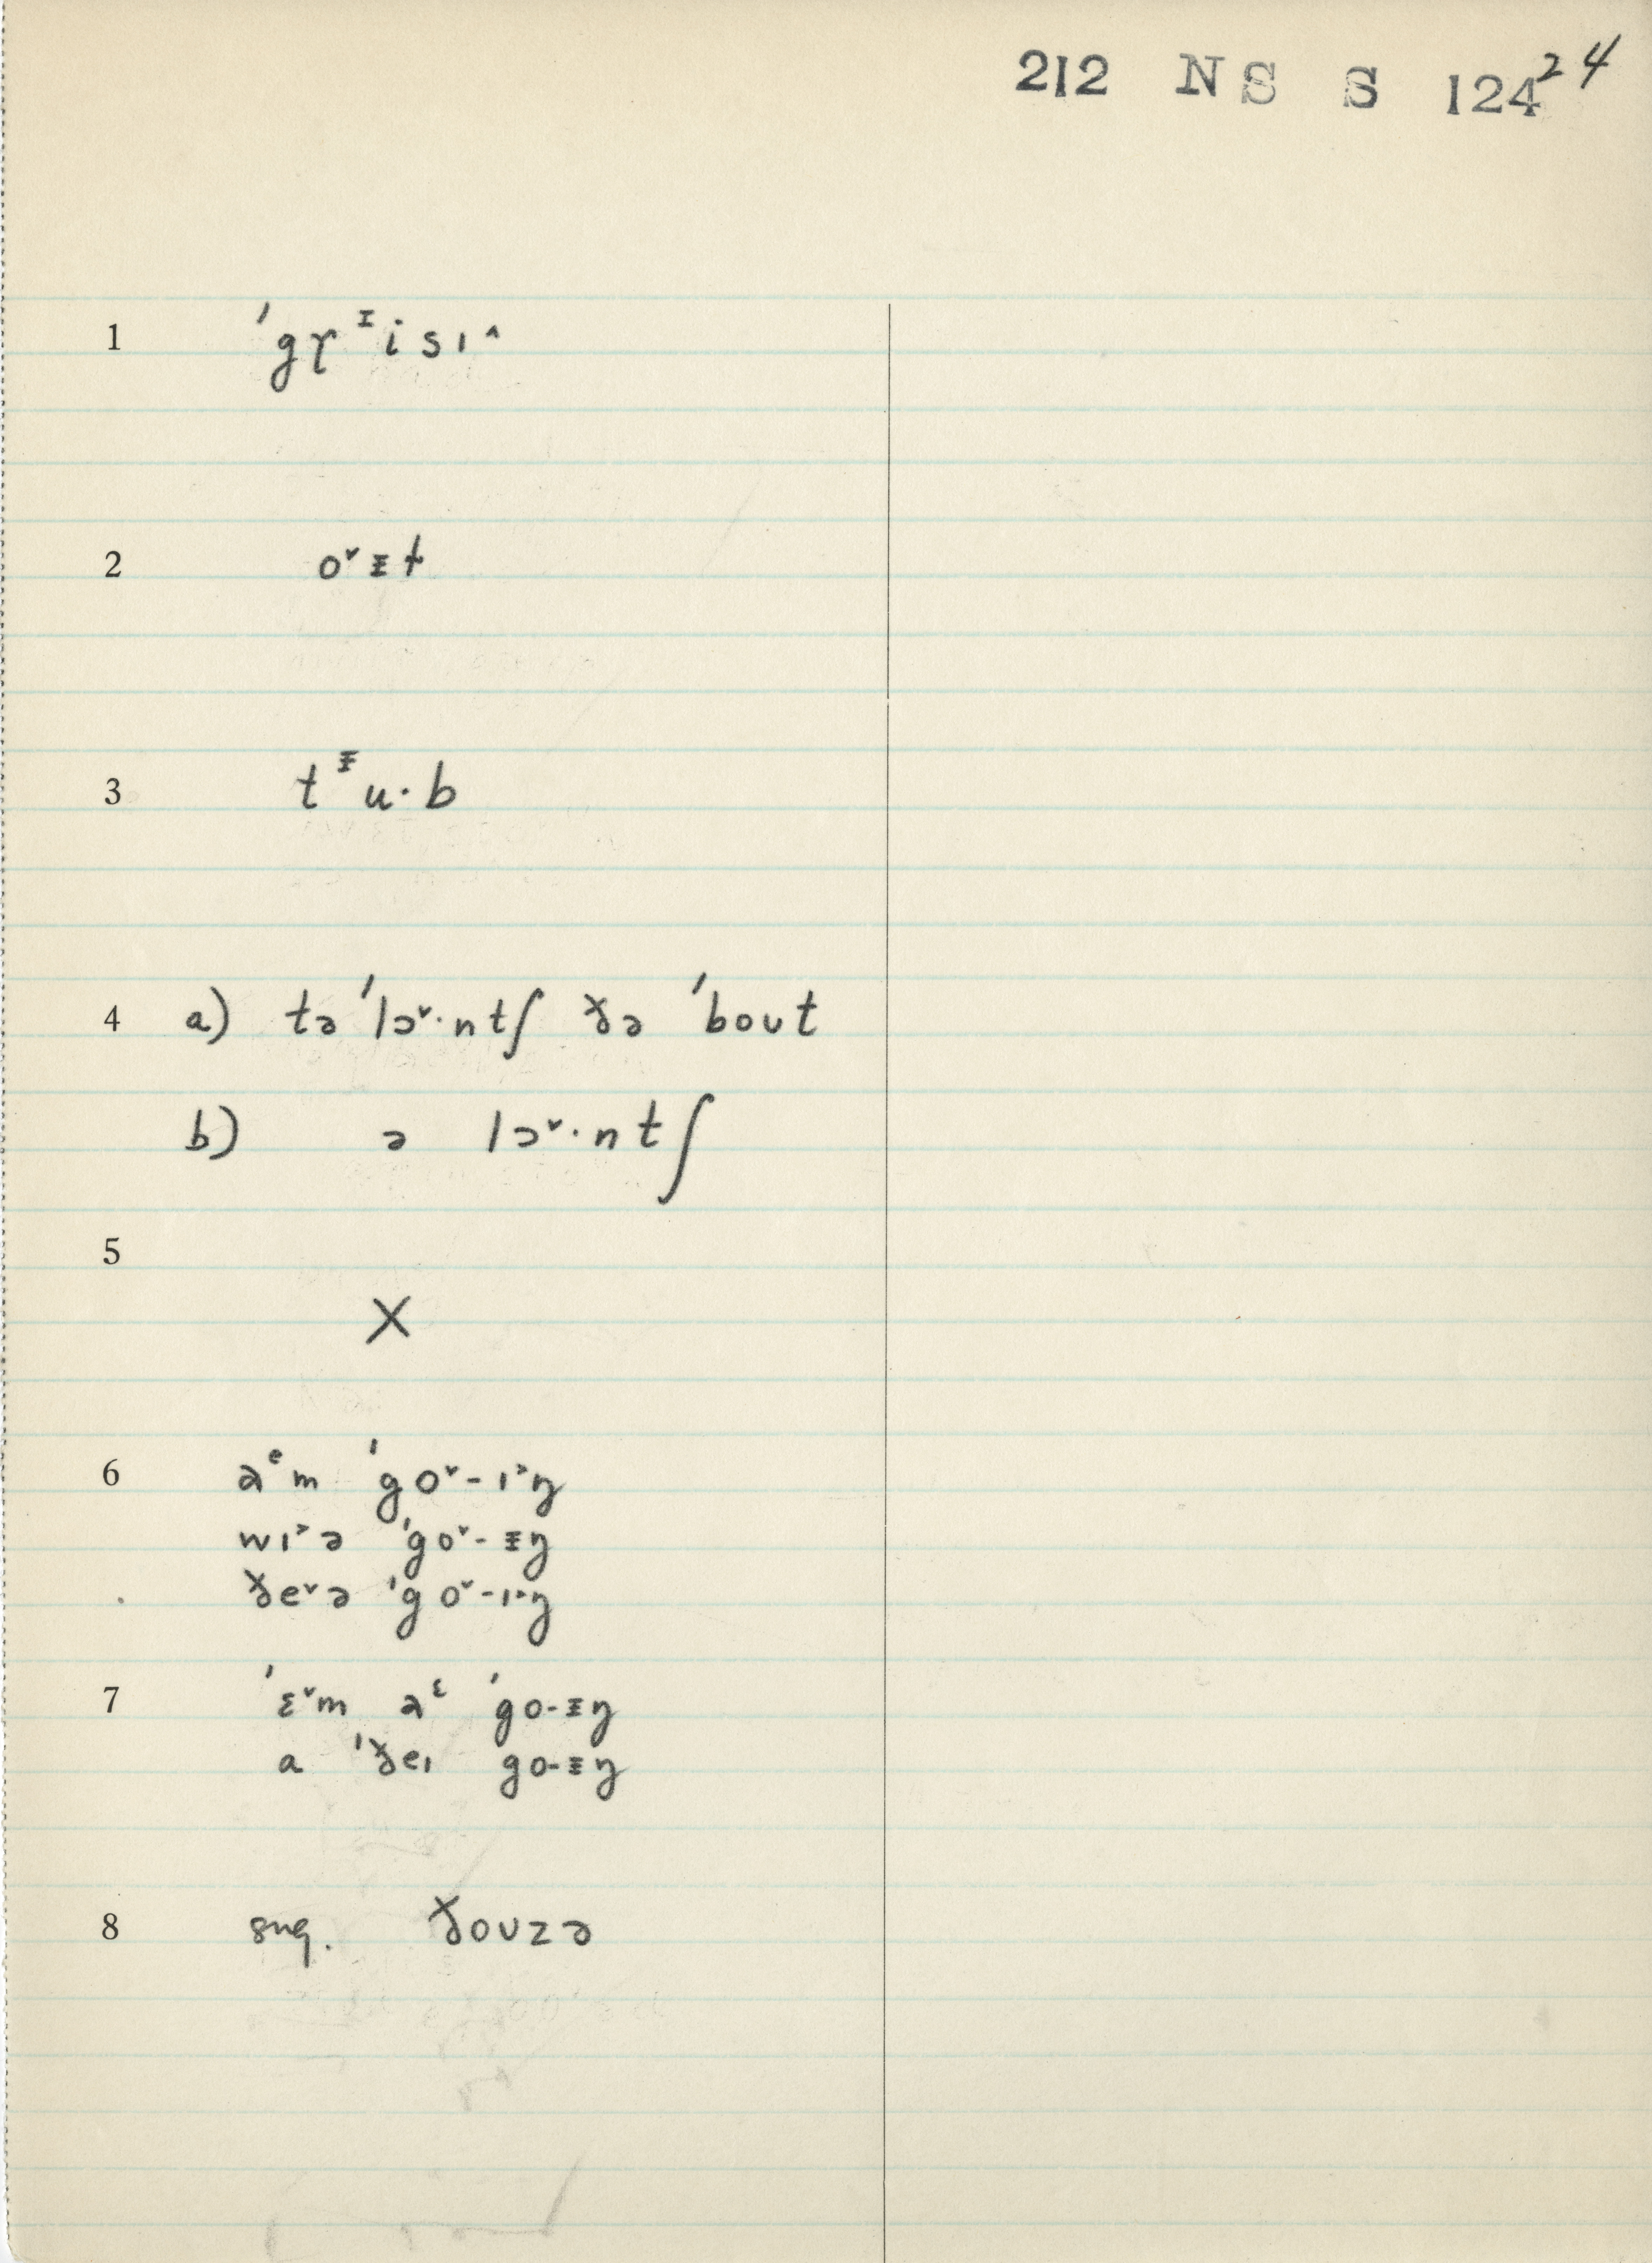 212 NS S 124 24
1 ˈgɤᶦisɪ^
2 o˅ɪt
3 tᶦu·b
4 a) tə ˈlɔ˅·ntʃ ðə ˈbout
b) ə lɔ˅·ntʃ
5
X
6 aᵉm ˈgo˅-ɪ˃ŋ
wɪ˃ə ˈgo˅-ᵻŋ
ðe˅ə ˈgo˅-ɪ˃ŋ
7 ˈɛ˅m aᵋ ˈgo-ᵻŋ
a ˈðeɪ go-ᵻŋ
8 sug. ðouzə